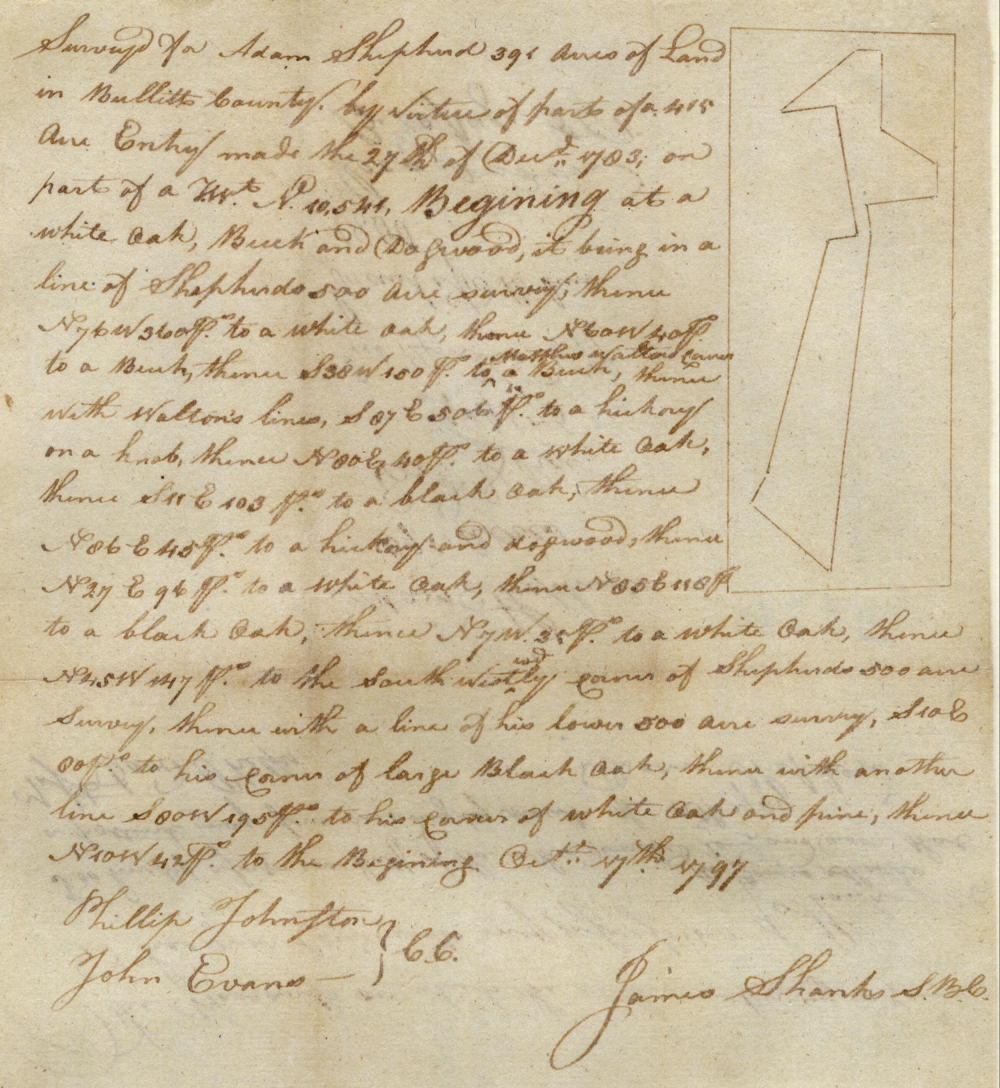 Survey'd for Adam Shepherd 391 Acres of Land
in Bullitt County. by virtue of part of a 415
Acre Entry made the 27th of Decr. 1783, on
part of a Wt. No. 10,541, Begining at a
white Oak, Beech and Dogwood, it being in a
line of Shepherds 500 acre survey; thence
N76W 360 ps. to a white oak, thence N60W 40 ps.
to a Beech, thence S38W 150 ps. to Matthew Waltons corner a Beech, thence
with Walton's lines, S87E 506 ps. to a hickory
on a knob, thence N80E, 40 ps. to a white Oak,
thence S11E 103 ps. to a black Oak, thence
N86E 45 ps. to a hickory and dogwood, thence
N27E 96 ps. to a white Oak, thence N85E 118 ps
to a black Oak, thence N7W. 31 ps. to a white Oak, thence
N45W 147 ps. to the South westwdly corner of Shepherds 500 acre
Survey, thence with a line of his lower 500 acre survey, S10E
80 ps. to his corner of large Black Oak, thence with another
line S80W 195 ps. to his corner of white Oak and pine, thence
N10W 42 ps. to the Begining Octr. 17th 1797
Phillip Johnston
John Evans } C.C.
James Shanks S.B.C.